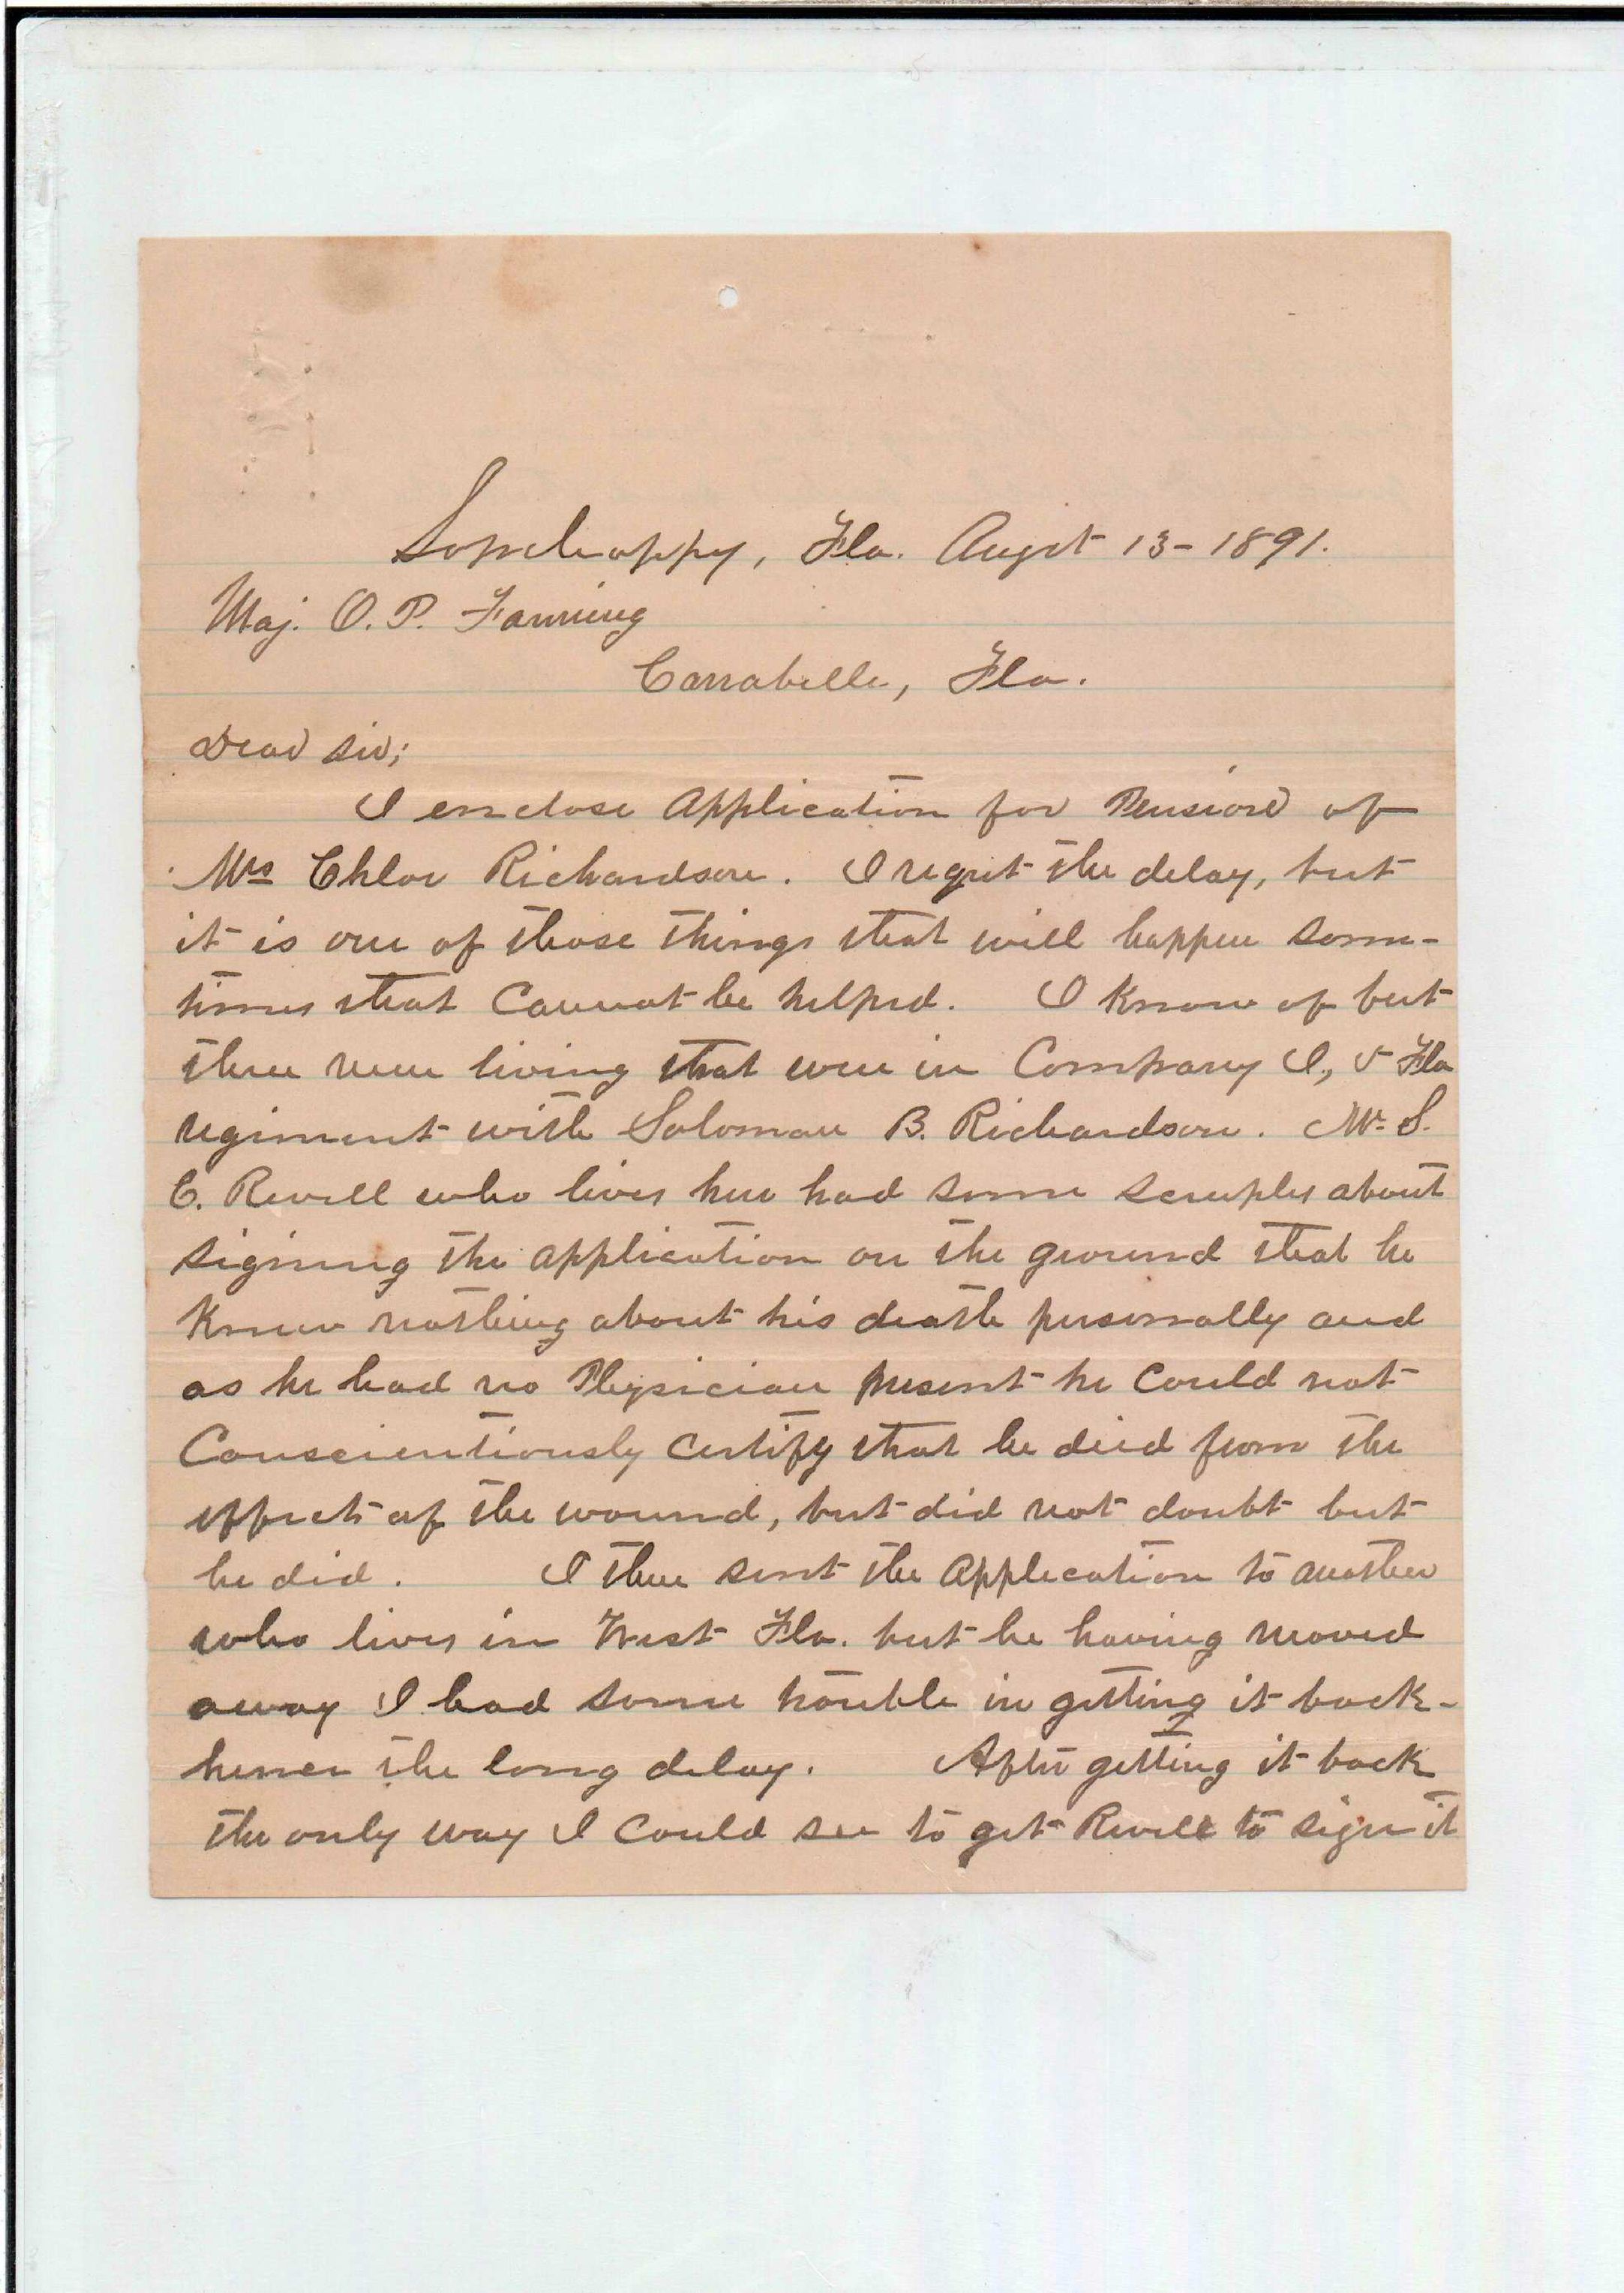 Sopchoppy, Fla. Augst 13-1891.
Maj. O. P. Fanning
Carrabelle, Fla.
Dear Sir;
I enclose Application for Pension of
Mrs Chloe Richardson. I regret the delay, but
it is one of those things that will happen some-
times that Cannot be helped. I Know of but
three men living that were in Company I, 5 Fla
regiment with Soloman B. Richardson. Mr. S.
C. Revell who lives here had some scruples about
signing the application on the ground that he
Knew nothing about his death personally and
as he had no Physician present he Could not
Conscientiously Certify that he died from the
effects of the wound, but did not doubt but
he did. I then sent the Application to another
who lives in West Fla. but he having moved
away I had some trouble in getting it back-
hence the long delay. After getting it back
the only way I Could see to get Revell to sign it